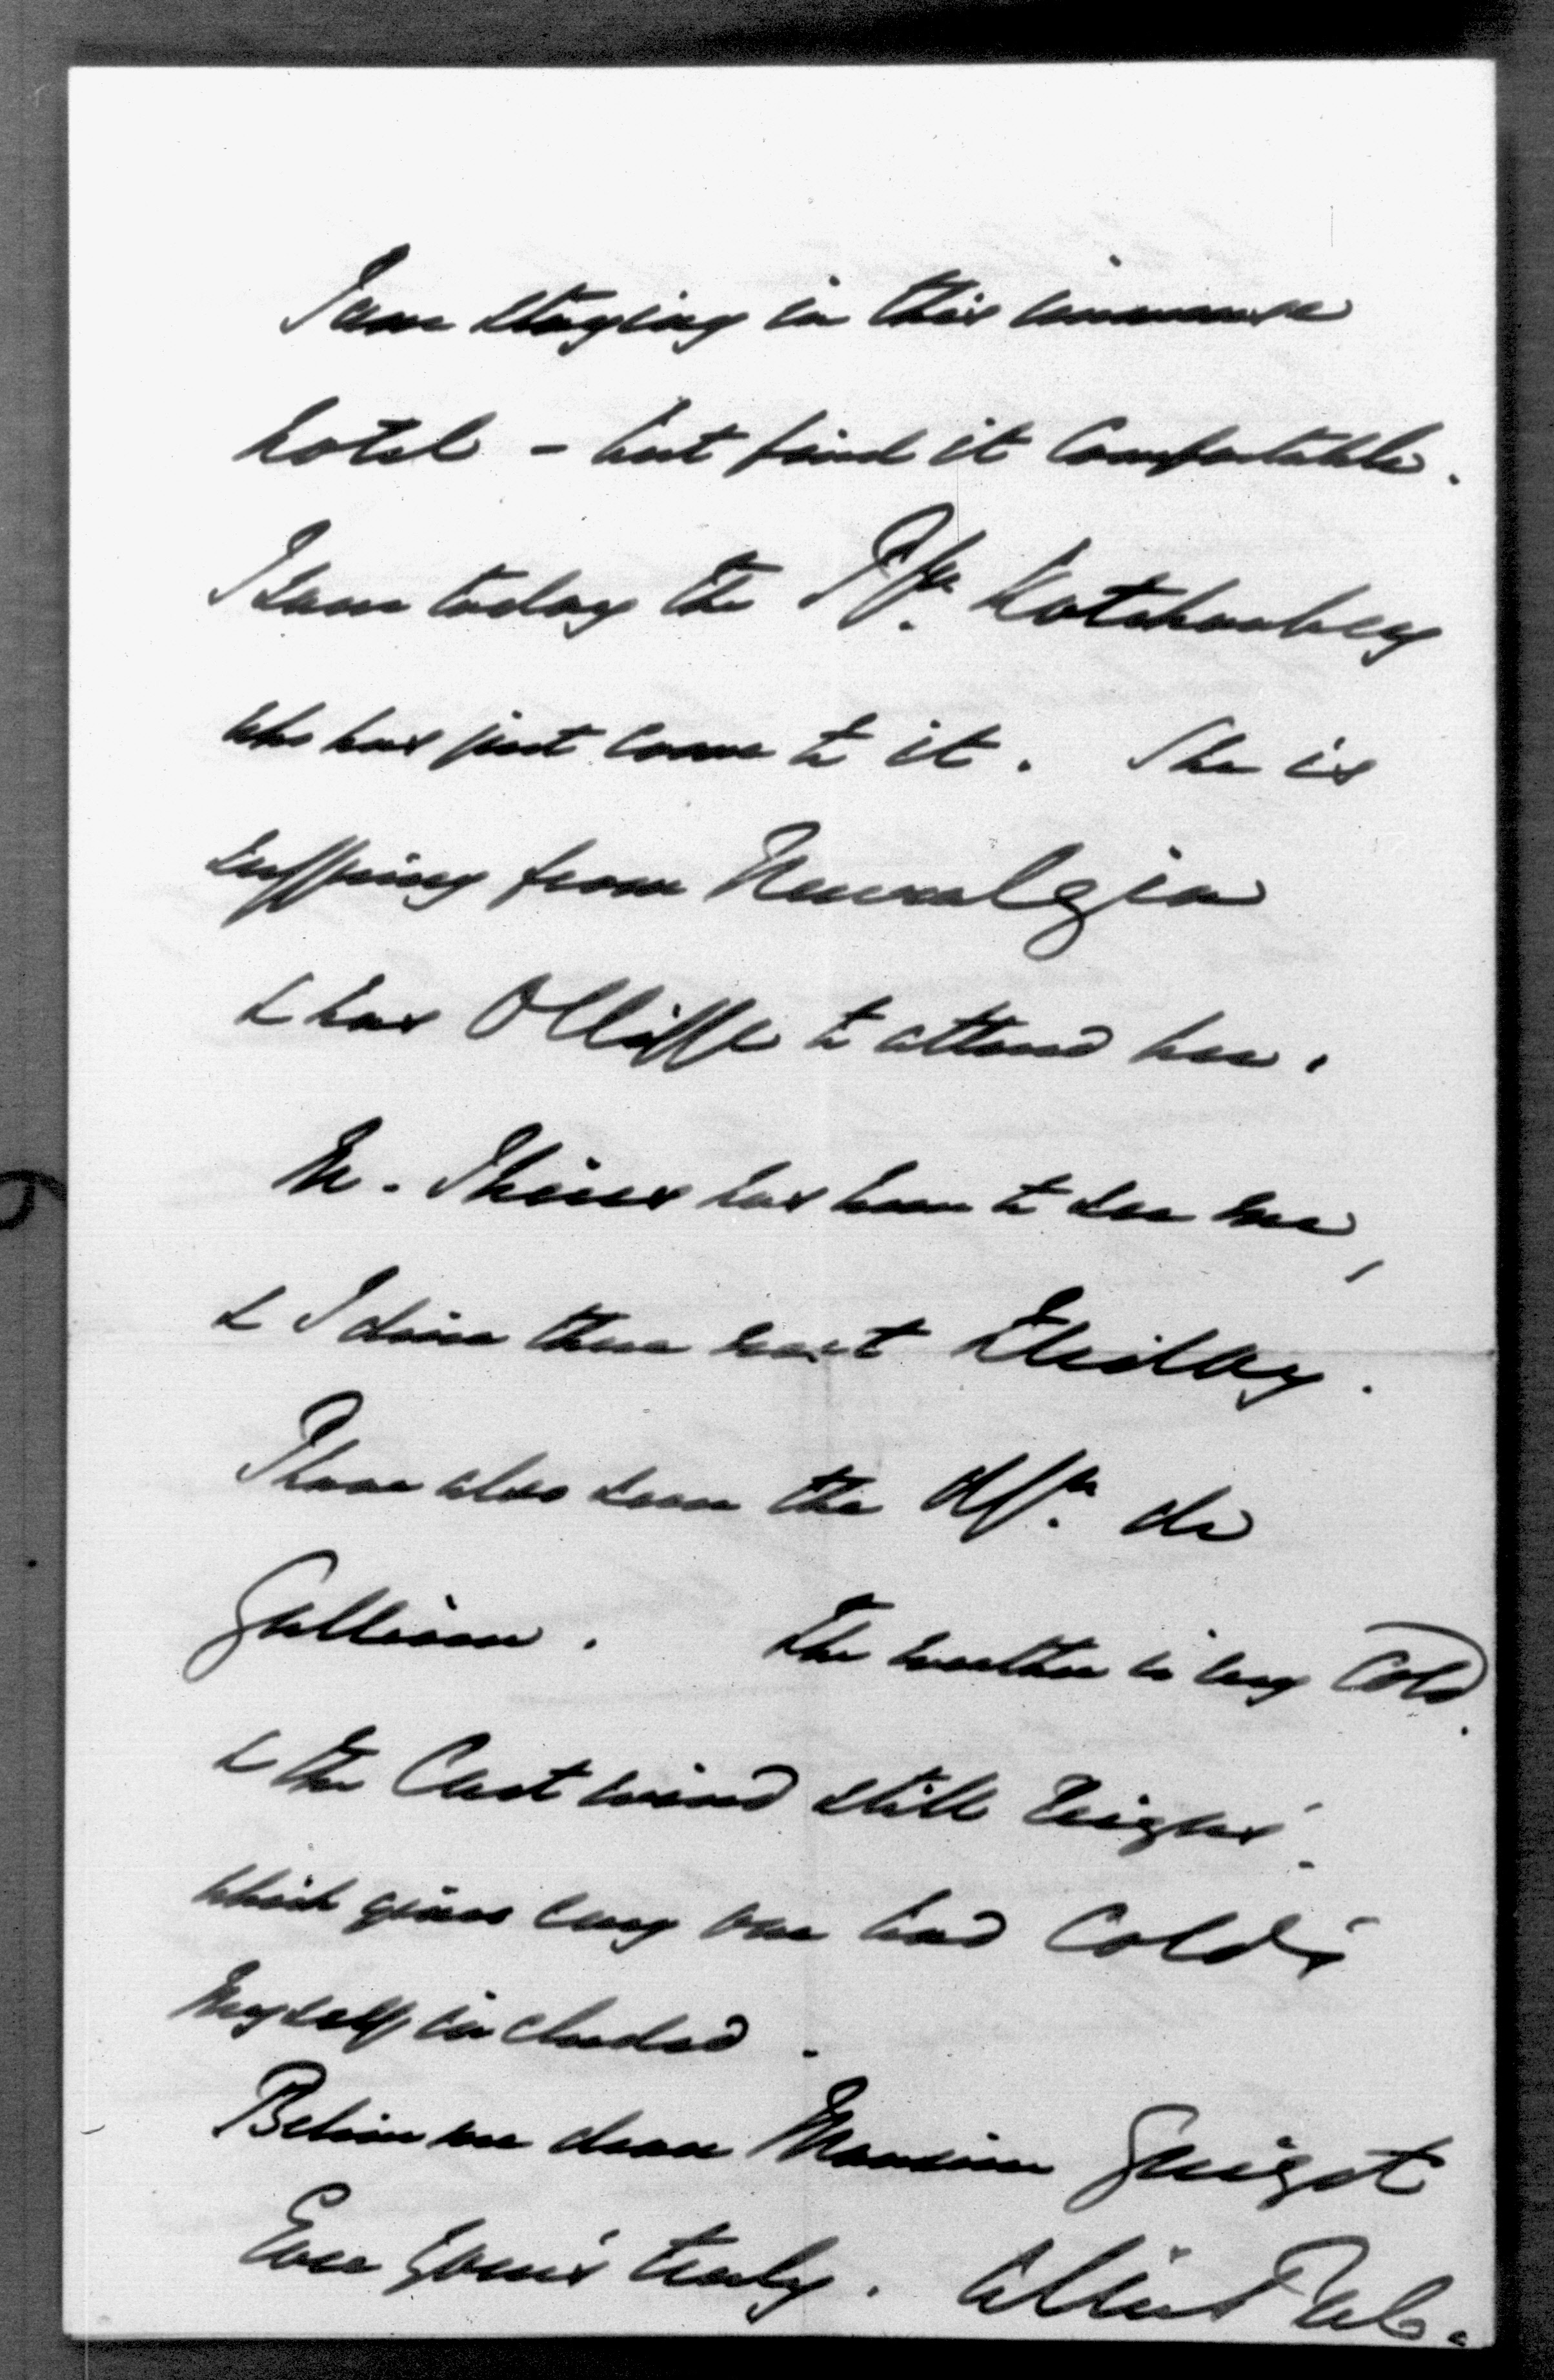 I am staying in this immense
hotel – but find it Comfortable.
I saw today the Pss. Kotchoubey
who has just come to it. She is
suffering from Neuralgia
& has Olliffe to attend her.
M. Thiers has been to see me,
& I dine there next
I have also seen the de
Galliera. The weather is very Cold.
& the East wind still reigns.
which gives every one bad Colds
myself included.
Believe me dear Monsieur Guizot
Ever yours truly.